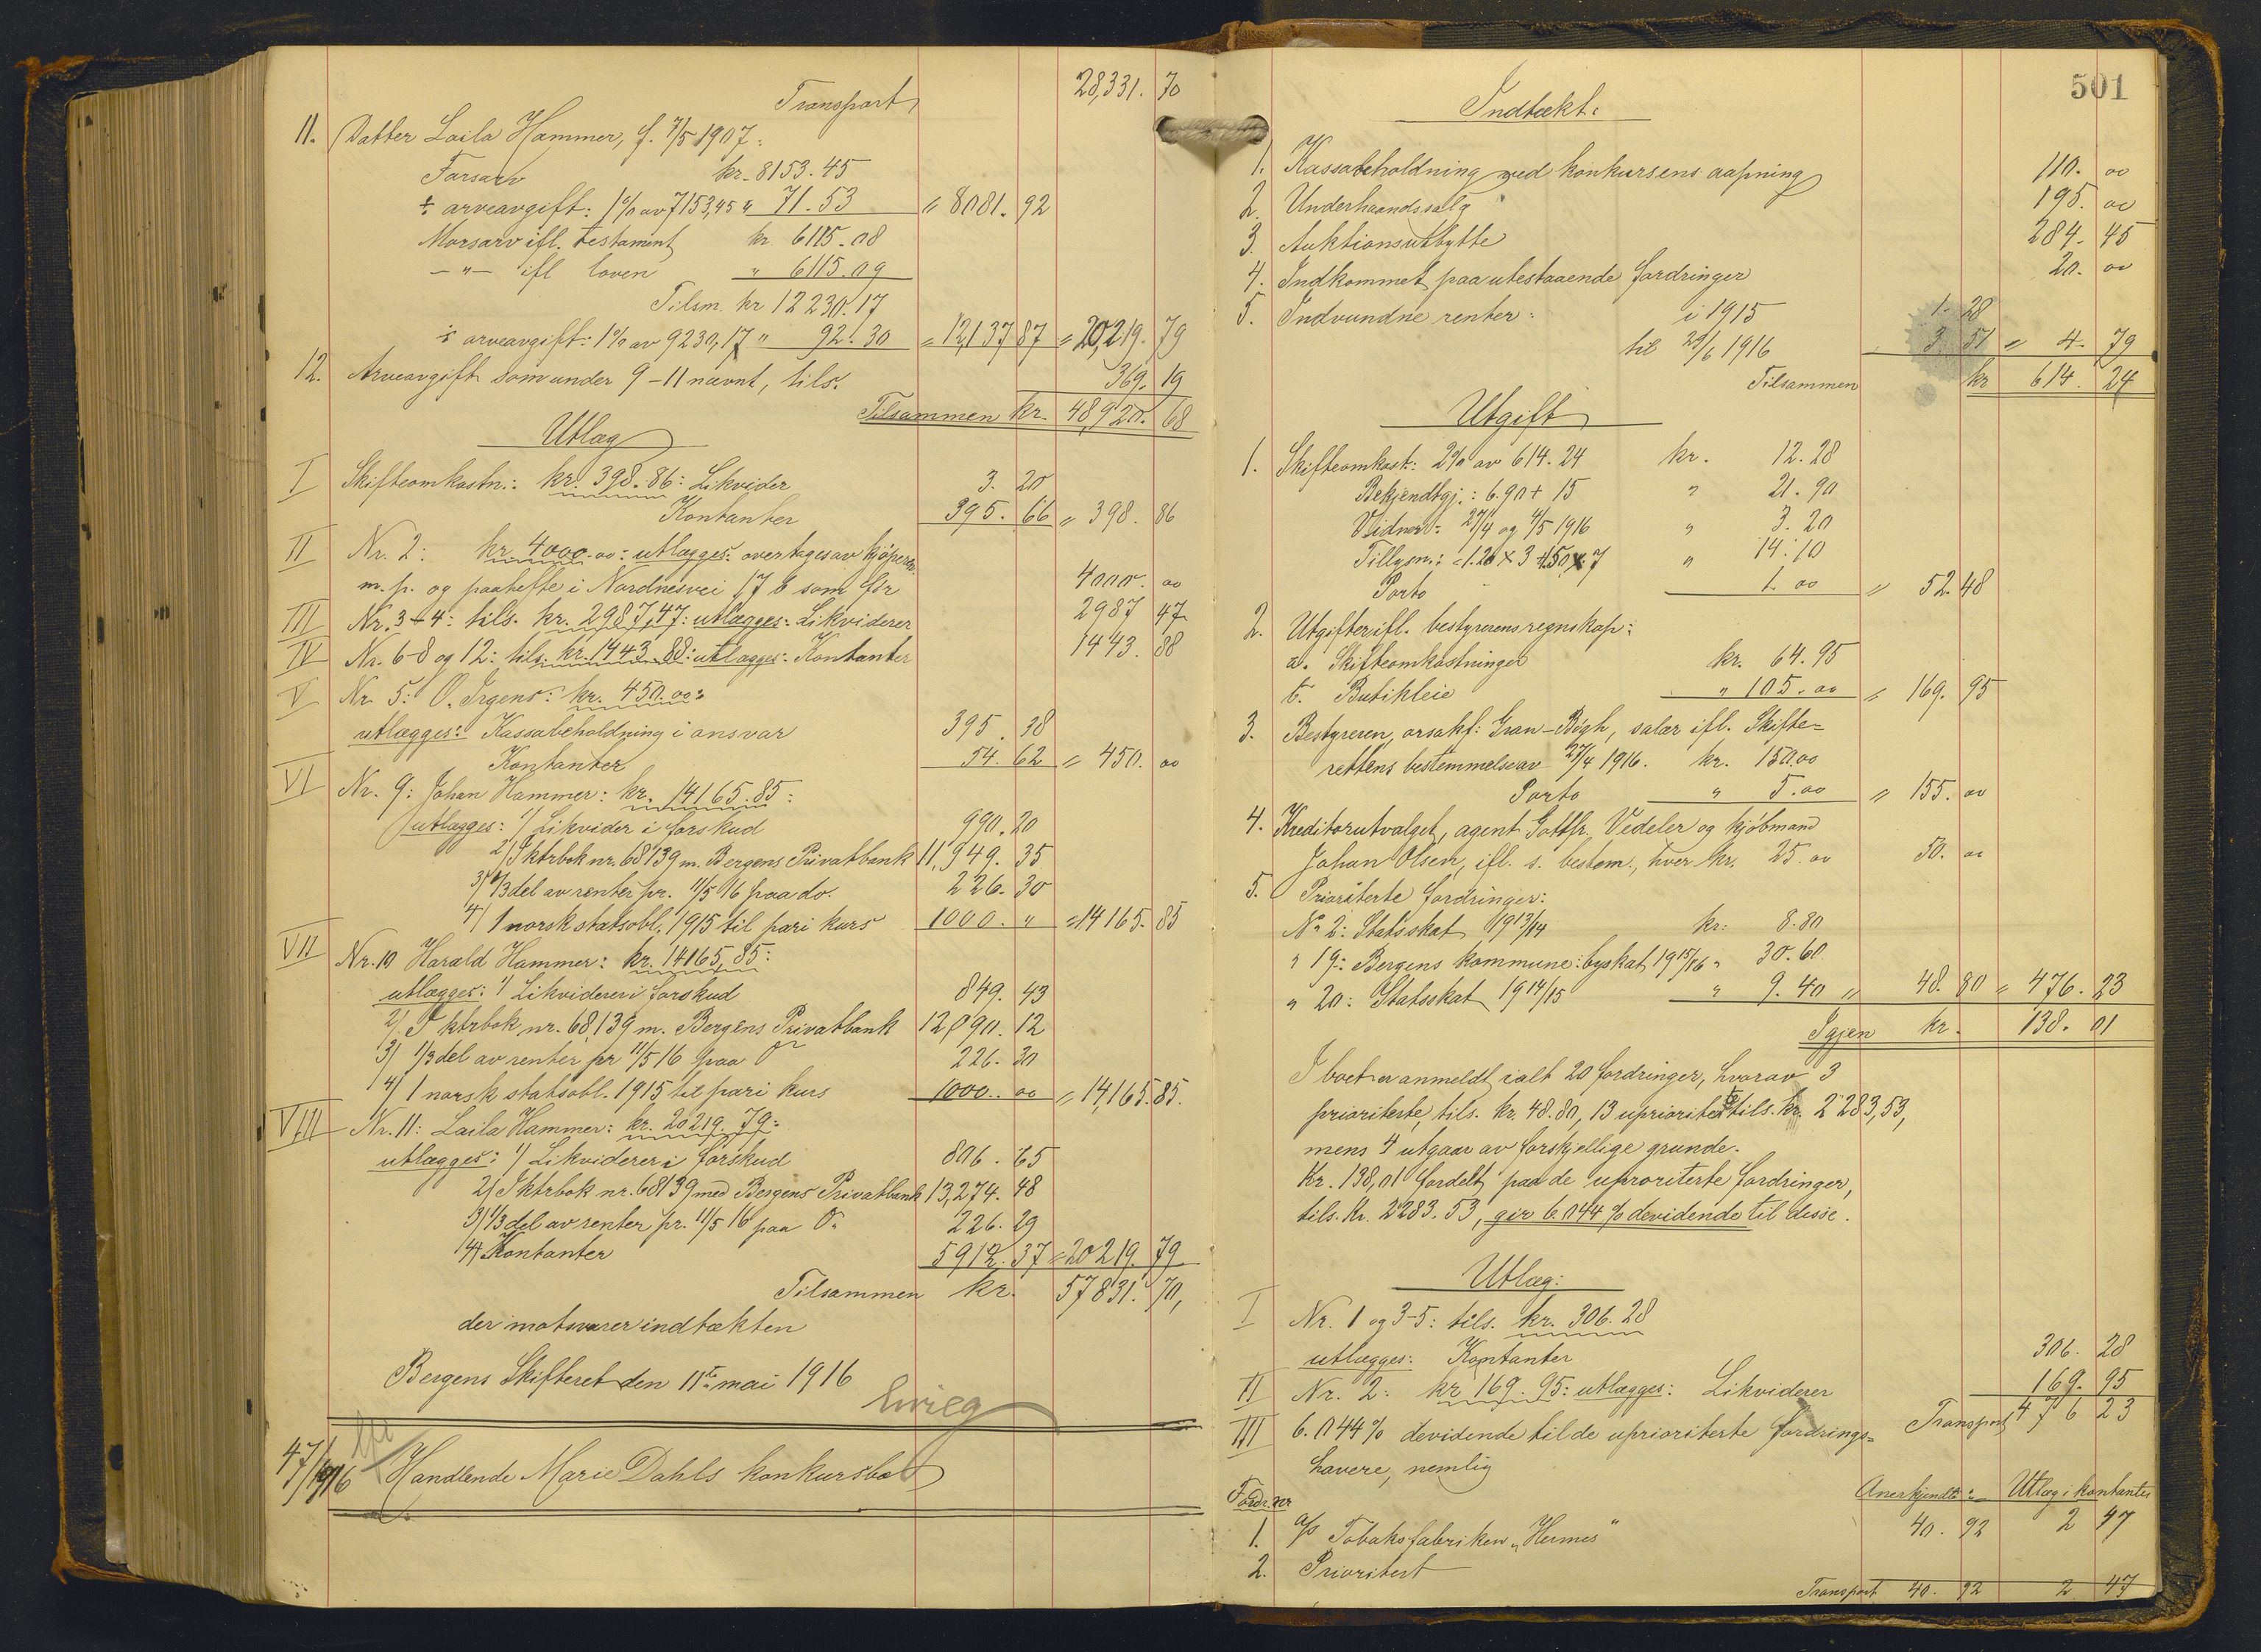 Transport 28,331. 70
11. Datter Laila Hammer, f. 7/5 1907:
Farsarv kr. 8153.45
÷ arveavgift: 1% av 7153,45 " 71.53 " 8081. 92
Morsarv ifl. testament kr 6115.08
— " — ifl loven " 6115.09
Tilsm. kr 12230.17
÷ arveavgift: 1% av 9230,17 " 92.30 = 12,137 87 = 20,219. 79
12. Arveavgift som under 9-11 nævnt, tils. 369. 19
Tilsammen kr. 48,920. 68
Utlæg
I Skifteomkostn.: kr. 398.86: Likvider 3. 20
Kontanter 395. 66 " 398. 86
II Nr. 2: kr. 4000.00: utlægges: overtages av kjøperen
m. p. og paahefte i Nordnesvei 17 b som før 4000. 00
III Nr. 3+4: tils. kr. 2987,47: utlægges: Likviderer 2987 47
IV Nr. 6-8 og 12: tils. kr. 1443.88: utlægges: Kontanter 1443. 88
V Nr 5: O. Irgens: kr. 450.00:
utlægges: Kassabeholdning i ansvar 395. 38
Kontanter 54. 62 = 450. 00
VI Nr. 9: Johan Hammer: kr. 14165.85:
utlægges: 1/ Likvider i forskud 990. 20
2/ I ktrbok nr. 68139 m. Bergens Privatbank 11,949. 35
3/ 1/3 del av renter pr. 11/5 16 paa do. 226. 30
4/ 1 norsk statsobl. 1915 til pari kurs 1000. " = 14165. 85
VII Nr. 10 Harald Hammer: kr. 14165,85:
utlægges: 1/ Likviderer i forskud 849. 43
2/ I ktrbok nr. 68,139 m. Bergens Privatbank 12,090. 12
3/ 1/3 del av renter pr 11/5 16 paa do 226. 30
4/ 1 norsk statsobl. 1915 til pari kurs 1000. 00 = 14,165. 85.
VIII Nr. 11: Laila Hammer: kr. 20219.79:
utlægges: 1/ Likviderer i forskud 806. 65
2/ I ktrbok nr. 68139 med Bergens Privatbank 13,274. 48
3/ 1/3 del av renter pr. 11/5 16 paa do 226. 29
4/ Kontanter 5912. 37 = 20219. 79
Tilsammen kr. 57831. 70,
der motsvarer indtækten
Bergens Skifteret den 11te mai 1916
47/1916 Handlende Marie Dahls konkursbo
501
Indtækt:
1. Kassabeholdning ved konkursens aapning 110. 00
2. Underhaandssalg 195. 00
3. Auktionsutbytte 284. 45
4. Indkommet paa utestaaende fordringer 20. 00
5. Indvundne renter: i 1915 1. 28
til 29/6 1916 3. 51 " 4. 79
Tilsammen kr 614. 24
Utgift
1. Skifteomkost: 2% av 614.24 kr. 12.28
Bekjendtgj.: 6.90 + 15 " 21.90
Vidner: 27/4 og 4/5 1916 " 3.20
Tillysn.: 1.20 x 3 + 1.50 x 7 " 14.10
Porto 1.00 " 52. 48
2. Utgifter ifl. bestyrerens regnskap:
a. Skifteomkostninger kr. 64.95
b. Butikleie " 105.00 " 169. 95
3. Bestyreren, orsakf: Gran-Bøgh, salær ifl. Skifte=
rettens bestemmelse av 27/4 1916. kr. 150.00
Porto " 5.00 " 155. 00
4. Kreditorutvalget, agent Gottfr. Vedeler og kjøbmand
Johan Olsen, ifl. s. bestem., hver kr. 25.00 50. 00
5. Prioriterte fordringer:
No 2: Statsskat 1913/14 kr: 8.80
" 19: Bergens kommune: byskat 1915/16 " 30.60
" 20: Statsskat 1914/15 " 9.40 " 48. 80 " 476. 23
Igjen kr. 138. 01
I boet er anmeldt ialt 20 fordringer, hvorav 3
prioriterte, tils. kr. 48.80, 13 uprioriterte tils. kr. 2283,53,
mens 4 utgaar av forskjellige grunde.
Kr. 138,01 fordelt paa de uprioriterte fordringer,
tils. kr. 2283.53, gir 6.044 % devidende til disse.
Utlæg:
I Nr. 1 og 3-5: tils. kr. 306.28
utlægges: Kontanter 306. 28
II Nr. 2: kr 169.95: utlægges: Likviderer 169. 95
III 6.044% devidende til de uprioriterte fordrings= Transport 476 23
havere, nemlig
Fordr. nr Anerkjendt: Utlæg i kontanter
1. A/S Tobaksfabriken "Hermes" 40. 92 2 47
2. Prioritert
Transport 40. 92 2 47